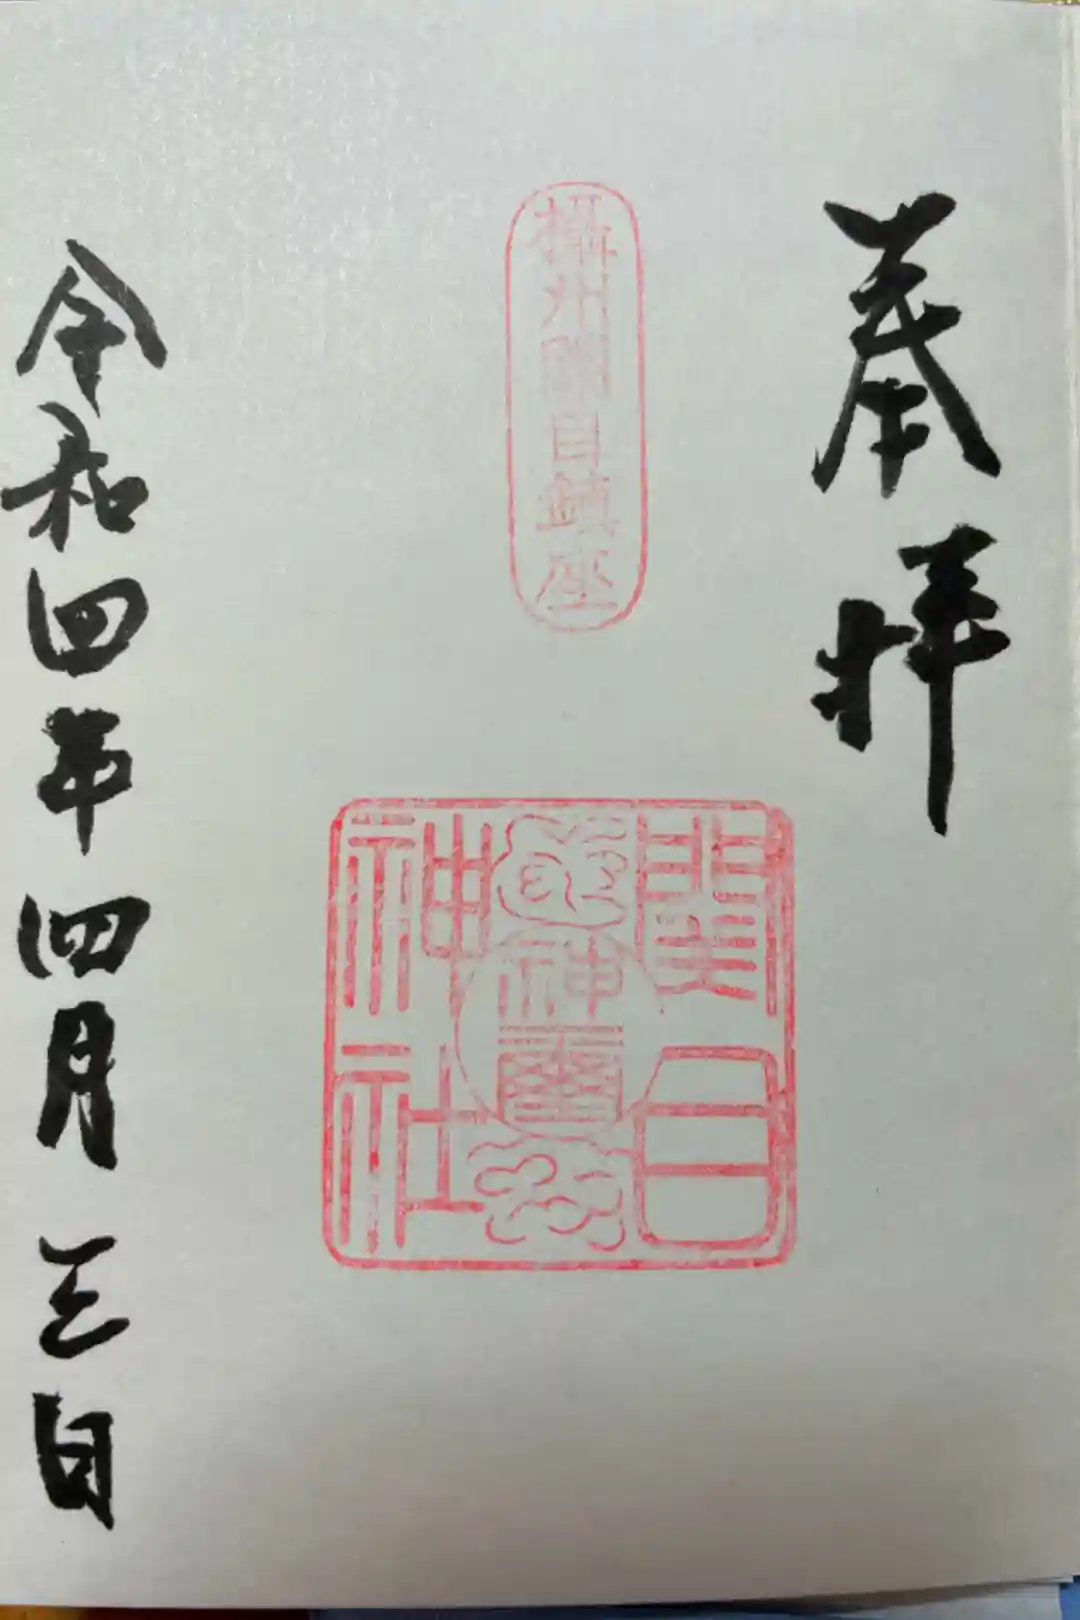 奉拝
攝州関目鎮座
関目
神社
神璽
令和四年四月三日